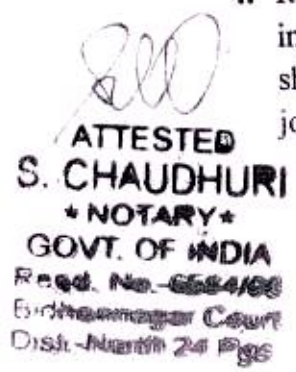 in
sh
jo
ATTESTED
S. CHAUDHURI
* NOTARY *
GOVT. OF INDIA
Regd. No.-
Bidhannagar Court
Dist.-North 24 Pgs